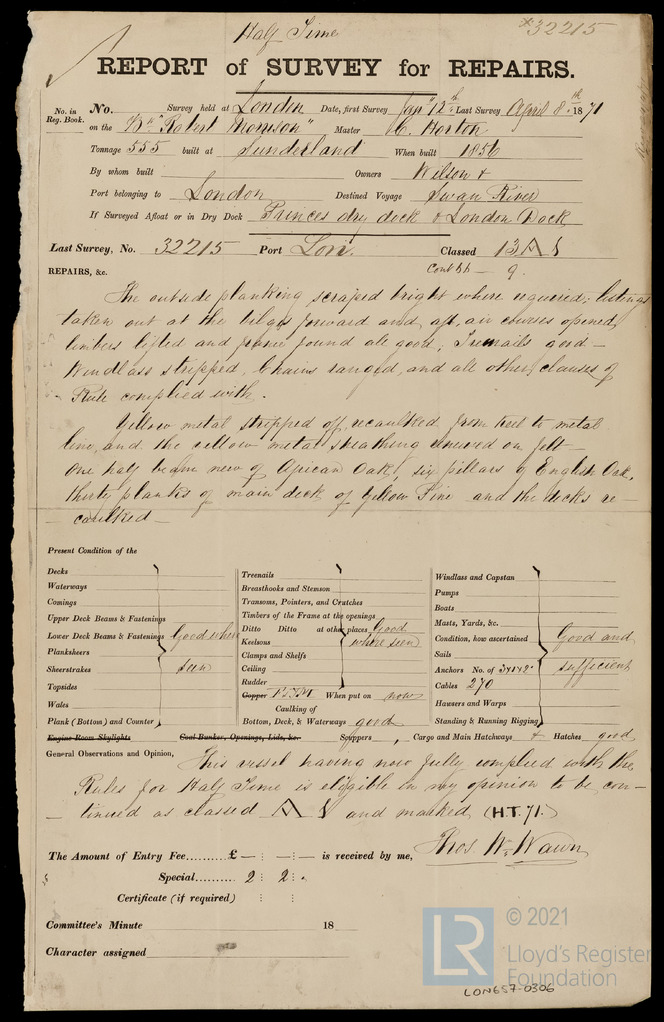 Half Time
*32215
REPORT of SURVEY for REPAIRS.
No. in Reg. Book. No. Survey held at London Date, first Survey Jany 12th Last Survey April 8th 1871
on the Bk "Robert Morrison" Master C. Horton
Tonnage 555 built at Sunderland When built 1856
By whom built Owners Wilson &
Port belonging to London Destined Voyage Swan River
If Surveyed Afloat or in Dry Dock Princes dry dock & London Dock
Last Survey, No. 32215 Port Lon. Classed 13 A 1
Contd 66 - 9.
REPAIRS, &c.
The outside planking scraped bright where required; listings
taken out at the bilges forward and aft, air courses opened,
limbers lifted and frame found all good, Treenails good -
Windlass stripped, Chains ranged, and all other clauses of
Rule complied with.
Yellow metal stripped off, recaulked from keel to metal
line, and the yellow metal sheathing renewed on felt -
One half beam new of African Oak, six pillars of English Oak,
thirty planks of main deck of Yellow Pine and the decks re-
caulked -
Present Condition of the
Decks
Waterways
Comings
Upper Deck Beams & Fastenings
Lower Deck Beams & Fastenings Good where
Planksheers
Sheerstrakes seen
Topsides
Wales
Plank (Bottom) and Counter
Treenails
Breasthooks and Stemson
Transoms, Pointers, and Crutches
Timbers of the Frame at the openings
Ditto Ditto at other places Good
Keelsons where seen
Clamps and Shelfs
Ceiling
Rudder
Copper When put on now
Caulking of
Bottom, Deck, & Waterways good
Windlass and Capstan
Pumps
Boats
Masts, Yards, &c.
Condition, how ascertained Good and
Sails
Anchors No. of 3 & 1 & 2 sufficient
Cables 270
Hawsers and Warps
Standing & Running Rigging
Engine Room Skylights Coal Bunker, Openings, Lids, &c. Scuppers, Cargo and Main Hatchways & Hatches good
General Observations and Opinion, This vessel having now fully complied with the
Rules for Half Time is eligible in my opinion to be con-
tinued as classed A 1 and marked (H.T. 71.)
The Amount of Entry Fee.........£ - : - : - is received by me, Thos. W. Wawn
Special......... 2 : 2 : .
Certificate (if required) : :
Committee's Minute 18
Character assigned
LR © 2021
Lloyd's Register
Foundation
LON657-0306